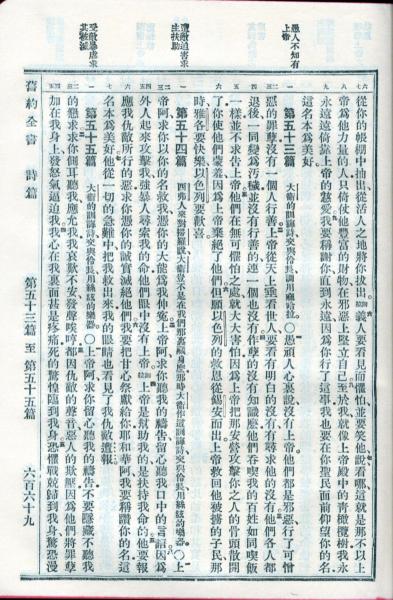 愚人不知有
上帝
遭敵迫害求
主扶助
受敵暴虐求
其殺滅
從你的帳棚中抽出從活人之地將你拔出義人要看見而懼怕並要笑他說看哪這就是那不以上
帝爲他力量的人只倚仗他豐富的財物在邪惡上堅立自己至於我就像上帝殿中的靑橄欖樹我永
永遠遠倚靠上帝的慈愛我要稱謝你直到永遠因爲你行了這事我也要在你聖民面前仰望你的名
這名本爲美好
第五十三篇 大衞的訓誨詩交與伶長調用麻哈拉 ○愚頑人心裏說沒有上帝他們都是邪惡行了可憎
惡的罪孽沒有一個人行善上帝從天上垂看世人要看有明白的沒有有尋求他的沒有他們各人都
退後一同變爲汚穢並沒有行善的連一個也沒有作孽的沒有知識麽他們吞吃我的百姓如同喫飯
一樣並不求告上帝他們在無可懼怕之處就大大害怕因爲上帝把那安營攻擊你之人的骨頭散開
了你使他們蒙羞因爲上帝棄絕了他們但願以色列的救恩從錫安而出上帝救回他被擄的子民那
時雅各要快樂以色列要歡喜
第五十四篇 西弗人來對掃羅說大衞豈不是在我們那裏藏身麽那時大衞作這訓誨詩交與伶長用絲絃的樂器 ○上
帝阿求你以你的名救我憑你的大能爲我伸冤上帝阿求你聽我的禱告留心聽我口中的言語因爲
外人起來攻擊我強暴人尋索我的命他們眼中沒有上帝上帝是幫助我的是扶持我命的他要報
應我仇敵所行的惡求你憑你的誠實滅絕他們我要把甘心祭獻給你耶和華阿我要稱讚你的名這
名本爲美好他從一切的急難中把我救出來我的眼睛也看見了我仇敵遭報
第五十五篇 大衞的訓誨詩交與伶長用絲絃的樂器 ○上帝阿求你留心聽我的禱告不要隱藏不聽我
的懇求求你側耳聽我應允我我哀歎不安發聲唉哼都因仇敵的聲音惡人的欺壓因爲他們將罪孽
加在我身上發怒氣逼迫我我心在我裏面甚是疼痛死的驚惶臨到我身恐懼戰兢歸到我身驚恐漫
舊約全書 詩篇 第五十三篇 至 第五十五篇 六百六十九